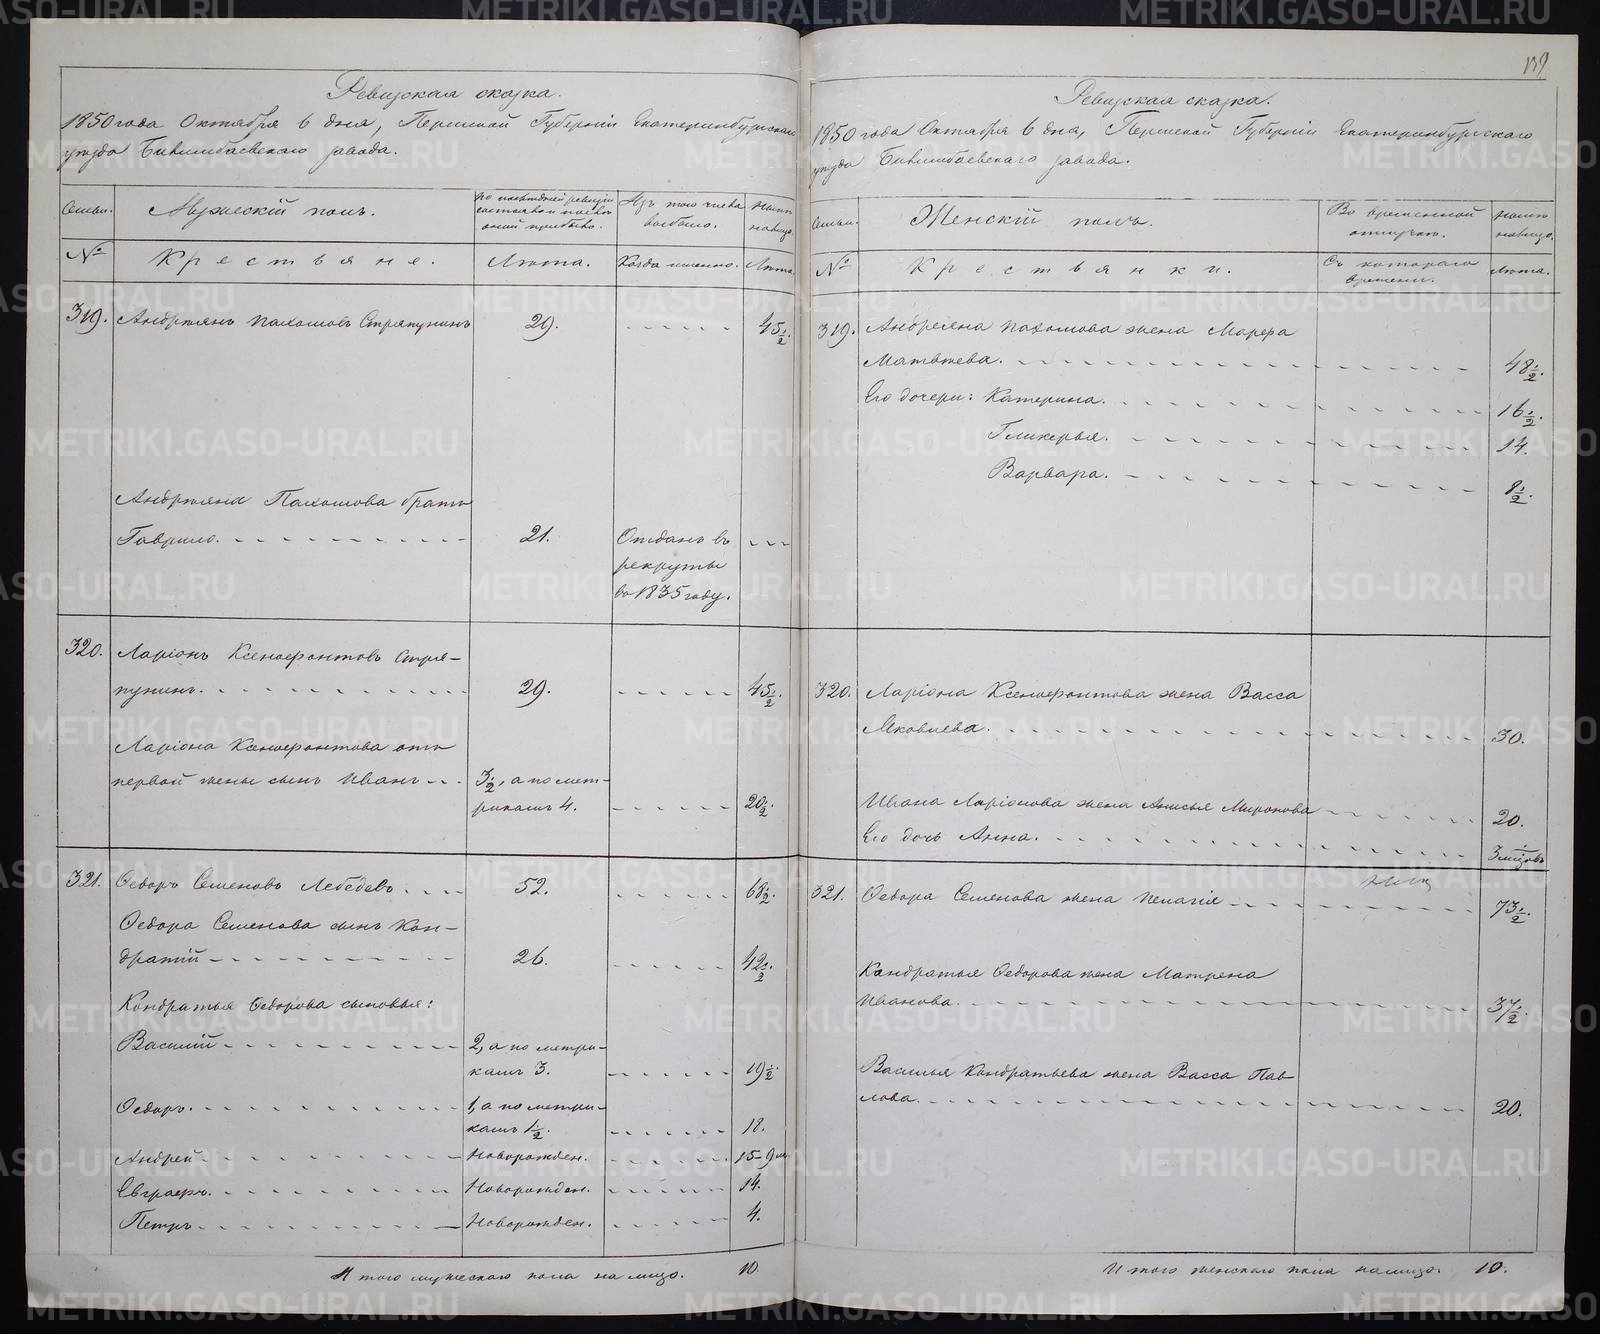 139
Ревизская сказка.
1850 года Октября 6 дня, Пермской Губерніи Екатеринбургскаго
уезда Билимбаевскаго завода.
Семьи. Мужескій полъ. По последней ревизіи состояло и после оной прибыло. Изъ того числа выбыло. Ныне на лицо.
№ Крестьяне. Лѣта. Когда именно. Лѣта.
319. Андреянъ Пахомовъ Стряпунинъ 29. 45 1/2.
Андреяна Пахомова братъ
Гаврило. 21. Отданъ въ
рекруты
въ 1835 году.
320. Ларіонъ Ксенофонтовъ Стря-
пунинъ. 29. 45 1/2.
Ларіона Ксенофонтова отъ
первой жены сынъ Иванъ 3 1/2, а по мет-
рикамъ 4. 20 1/2.
321. Ѳедоръ Семеновъ Лебедевъ. 52. 68 1/2.
Ѳедора Семенова сынъ Кон-
дратій 26. 42 1/2.
Кондратья Ѳедорова сыновья:
Василій 2, а по метри-
камъ 3. 19 1/2.
Ѳедоръ. 1, а по метри-
камъ 1 1/2. 18.
Андрей Новорожден. 15-9 м.
Евграфъ. Новорожден. 14.
Петръ Новорожден. 4.
Итого мужескаго пола на лицо. 10.
Ревизская сказка.
1850 года Октября 6 дня, Пермской Губерніи Екатеринбургскаго
уезда Билимбаевскаго завода.
Семьи. Женскій полъ. Во временной отлучке. Ныне на лицо.
№ Крестьянки. Съ котораго времени. Лѣта.
319. Андреяна Пахомова жена Марфа
Матвѣева. 48 1/2.
Его дочери: Катерина. 16 1/2.
Гликерья. 14.
Варвара. 8 1/2.
320. Ларіона Ксенофонтова жена Васса
Яковлева. 30.
Ивана Ларіонова жена Анисья Миронова 20.
Его дочь Анна. 3 мѣсяцовъ
321. Ѳедора Семенова жена Пелагія 73 1/2.
Кондратья Ѳедорова жена Матрена
Иванова. 37 1/2.
Василья Кондратьева жена Васса Пав-
лова. 20.
Итого женскаго пола на лицо. 10.
METRIKI.GASO-URAL.RU